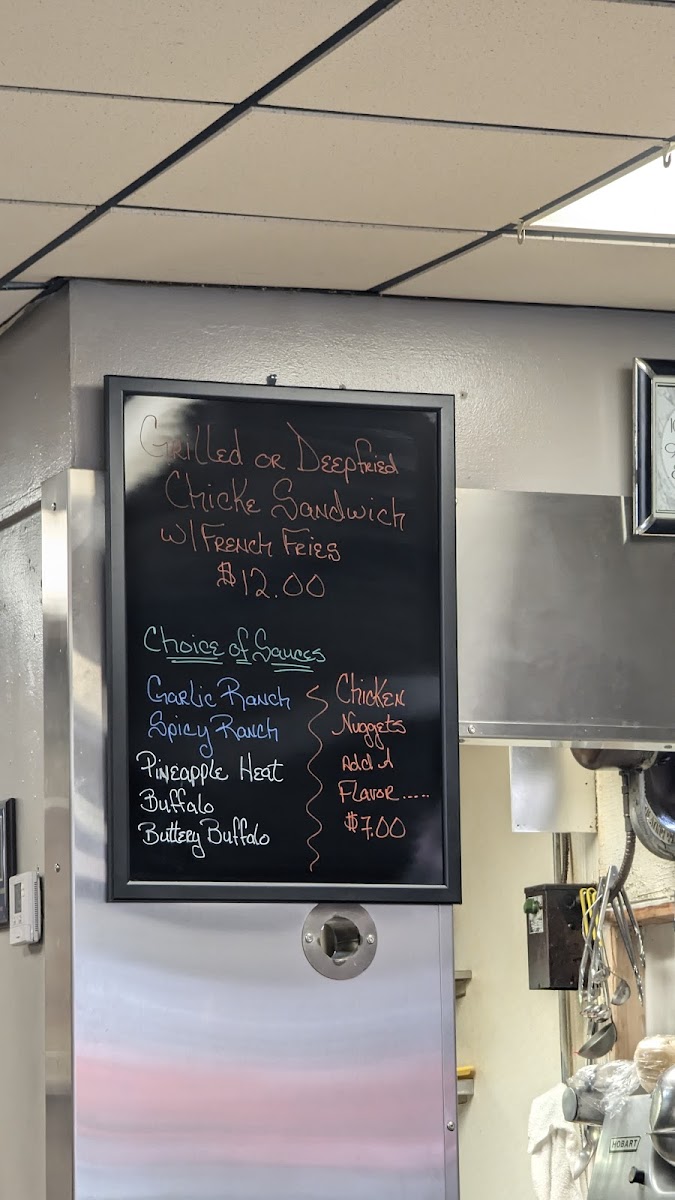 Grilled or Deepfried
Chicke Sandwich
w/ French Fries
$12.00
Choice of Sauces
Garlic Ranch
Spicy Ranch
Pineapple Heat
Buffalo
Buttery Buffalo
Chicken
Nuggets
Add A
Flavor.....
$7.00
HOBART